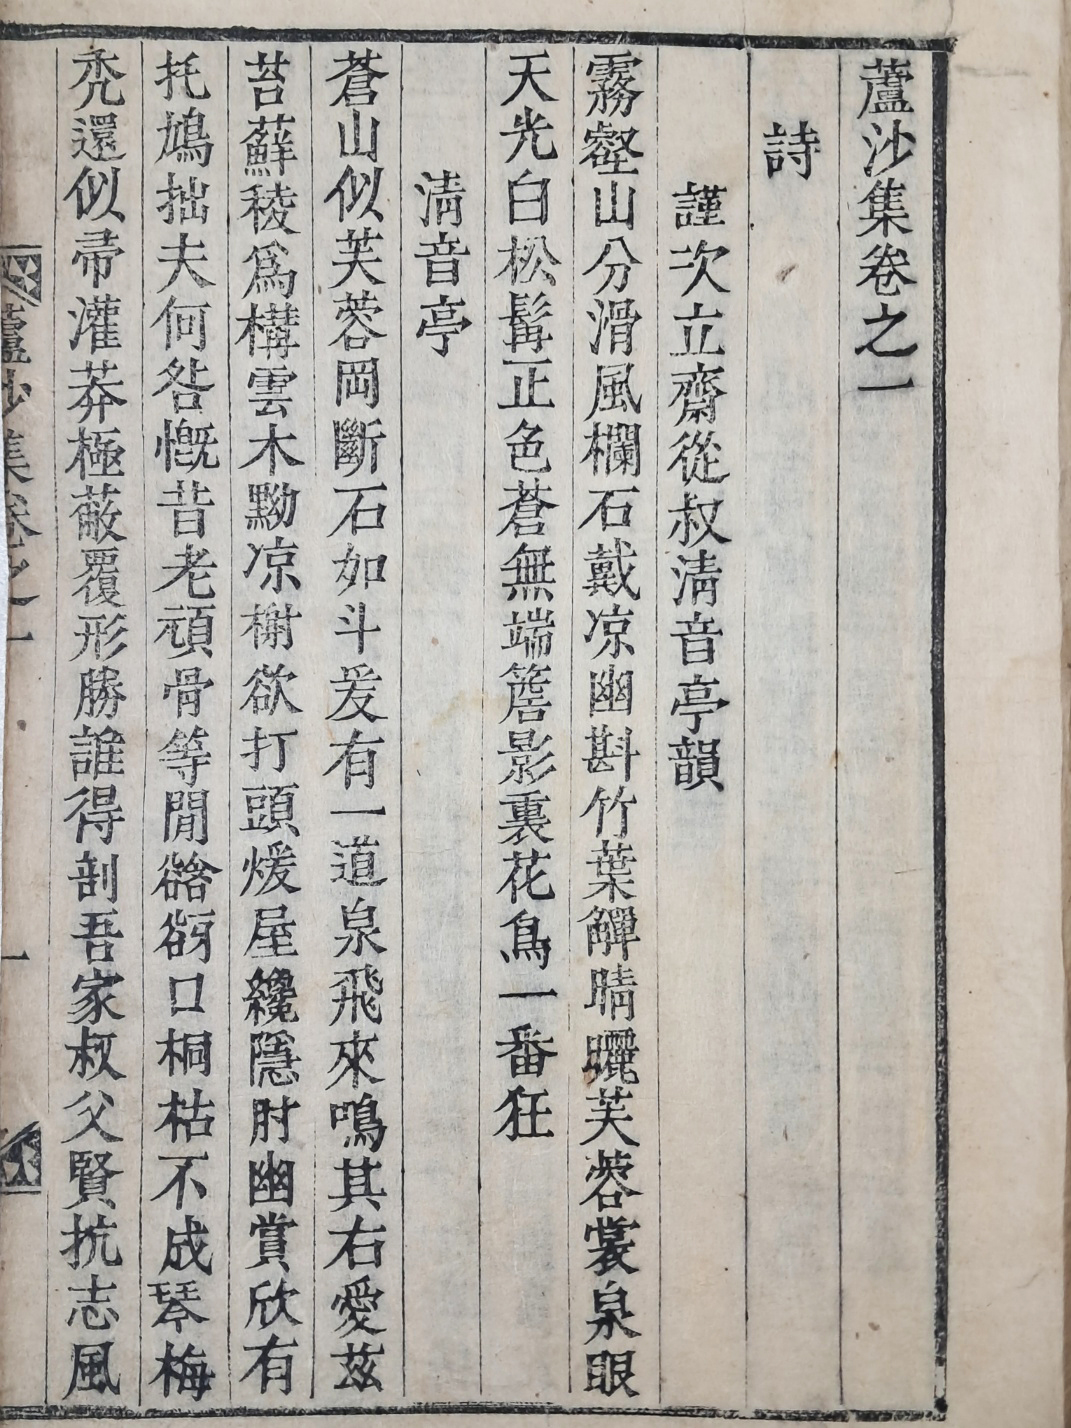 蘆沙集卷之一
詩
謹次立齋從叔淸音亭韻
霧壑山分滑風欄石戴凉幽斟竹葉觶晴曬芙蓉裳泉眼
天光白松髯正色蒼無端簷影裏花鳥一番狂
淸音亭
蒼山似芙蓉岡斷石如斗爰有一道泉飛來鳴其右愛玆
苔蘚稜爲構雲木黝凉榭欲打頭煖屋纔隱肘幽賞欣有
托鳩拙夫何咎慨昔老頑骨等閒谽谺口桐枯不成琴梅
禿還似帚灌莽極蔽覆形勝誰得剖吾家叔父賢抗志風
蘆沙集卷之一
一